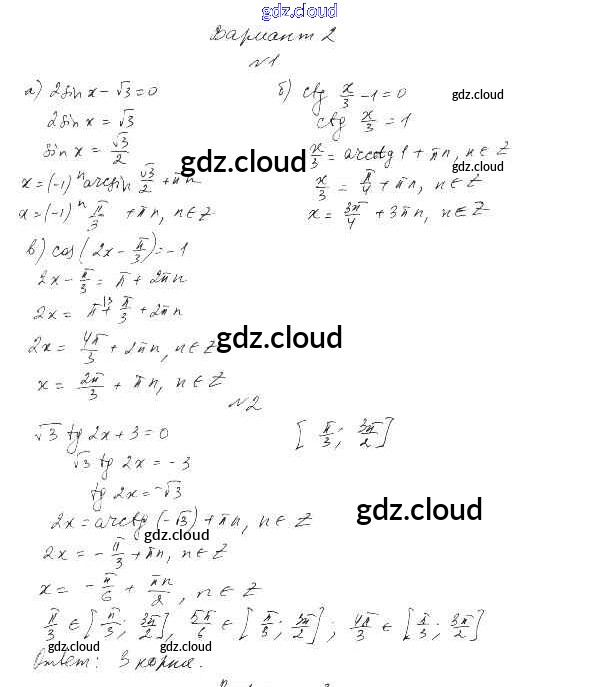 gdz.cloud
Вариант 2
№1
а) 2sin x - √3 = 0
2sin x = √3
sin x = √3/2
x = (-1)ⁿ arcsin √3/2 + πn
x = (-1)ⁿ π/3 + πn, n∈Z
б) ctg x/3 - 1 = 0
gdz.cloud
ctg x/3 = 1
x/3 = arcctg 1 + πn, n∈Z
gdz.cloud
gdz.cloud
x/3 = π/4 + πn, n∈Z
x = 3π/4 + 3πn, n∈Z
в) cos(2x - π/3) = -1
2x - π/3 = π + 2πn
2x = π + π/3 + 2πn
2x = 4π/3 + 2πn, n∈Z
gdz.cloud
x = 2π/3 + πn, n∈Z
№2
√3 tg 2x + 3 = 0 [π/3; 3π/2]
√3 tg 2x = -3
tg 2x = -√3
2x = arctg (-√3) + πn, n∈Z
gdz.cloud
gdz.cloud
2x = -π/3 + πn, n∈Z
x = -π/6 + πn/2, n∈Z
π/3 ∈ [π/3; 3π/2], 5π/6 ∈ [π/3; 3π/2]; 4π/3 ∈ [π/3; 3π/2]
gdz.cloud
gdz.cloud
Ответ: 3 корня.